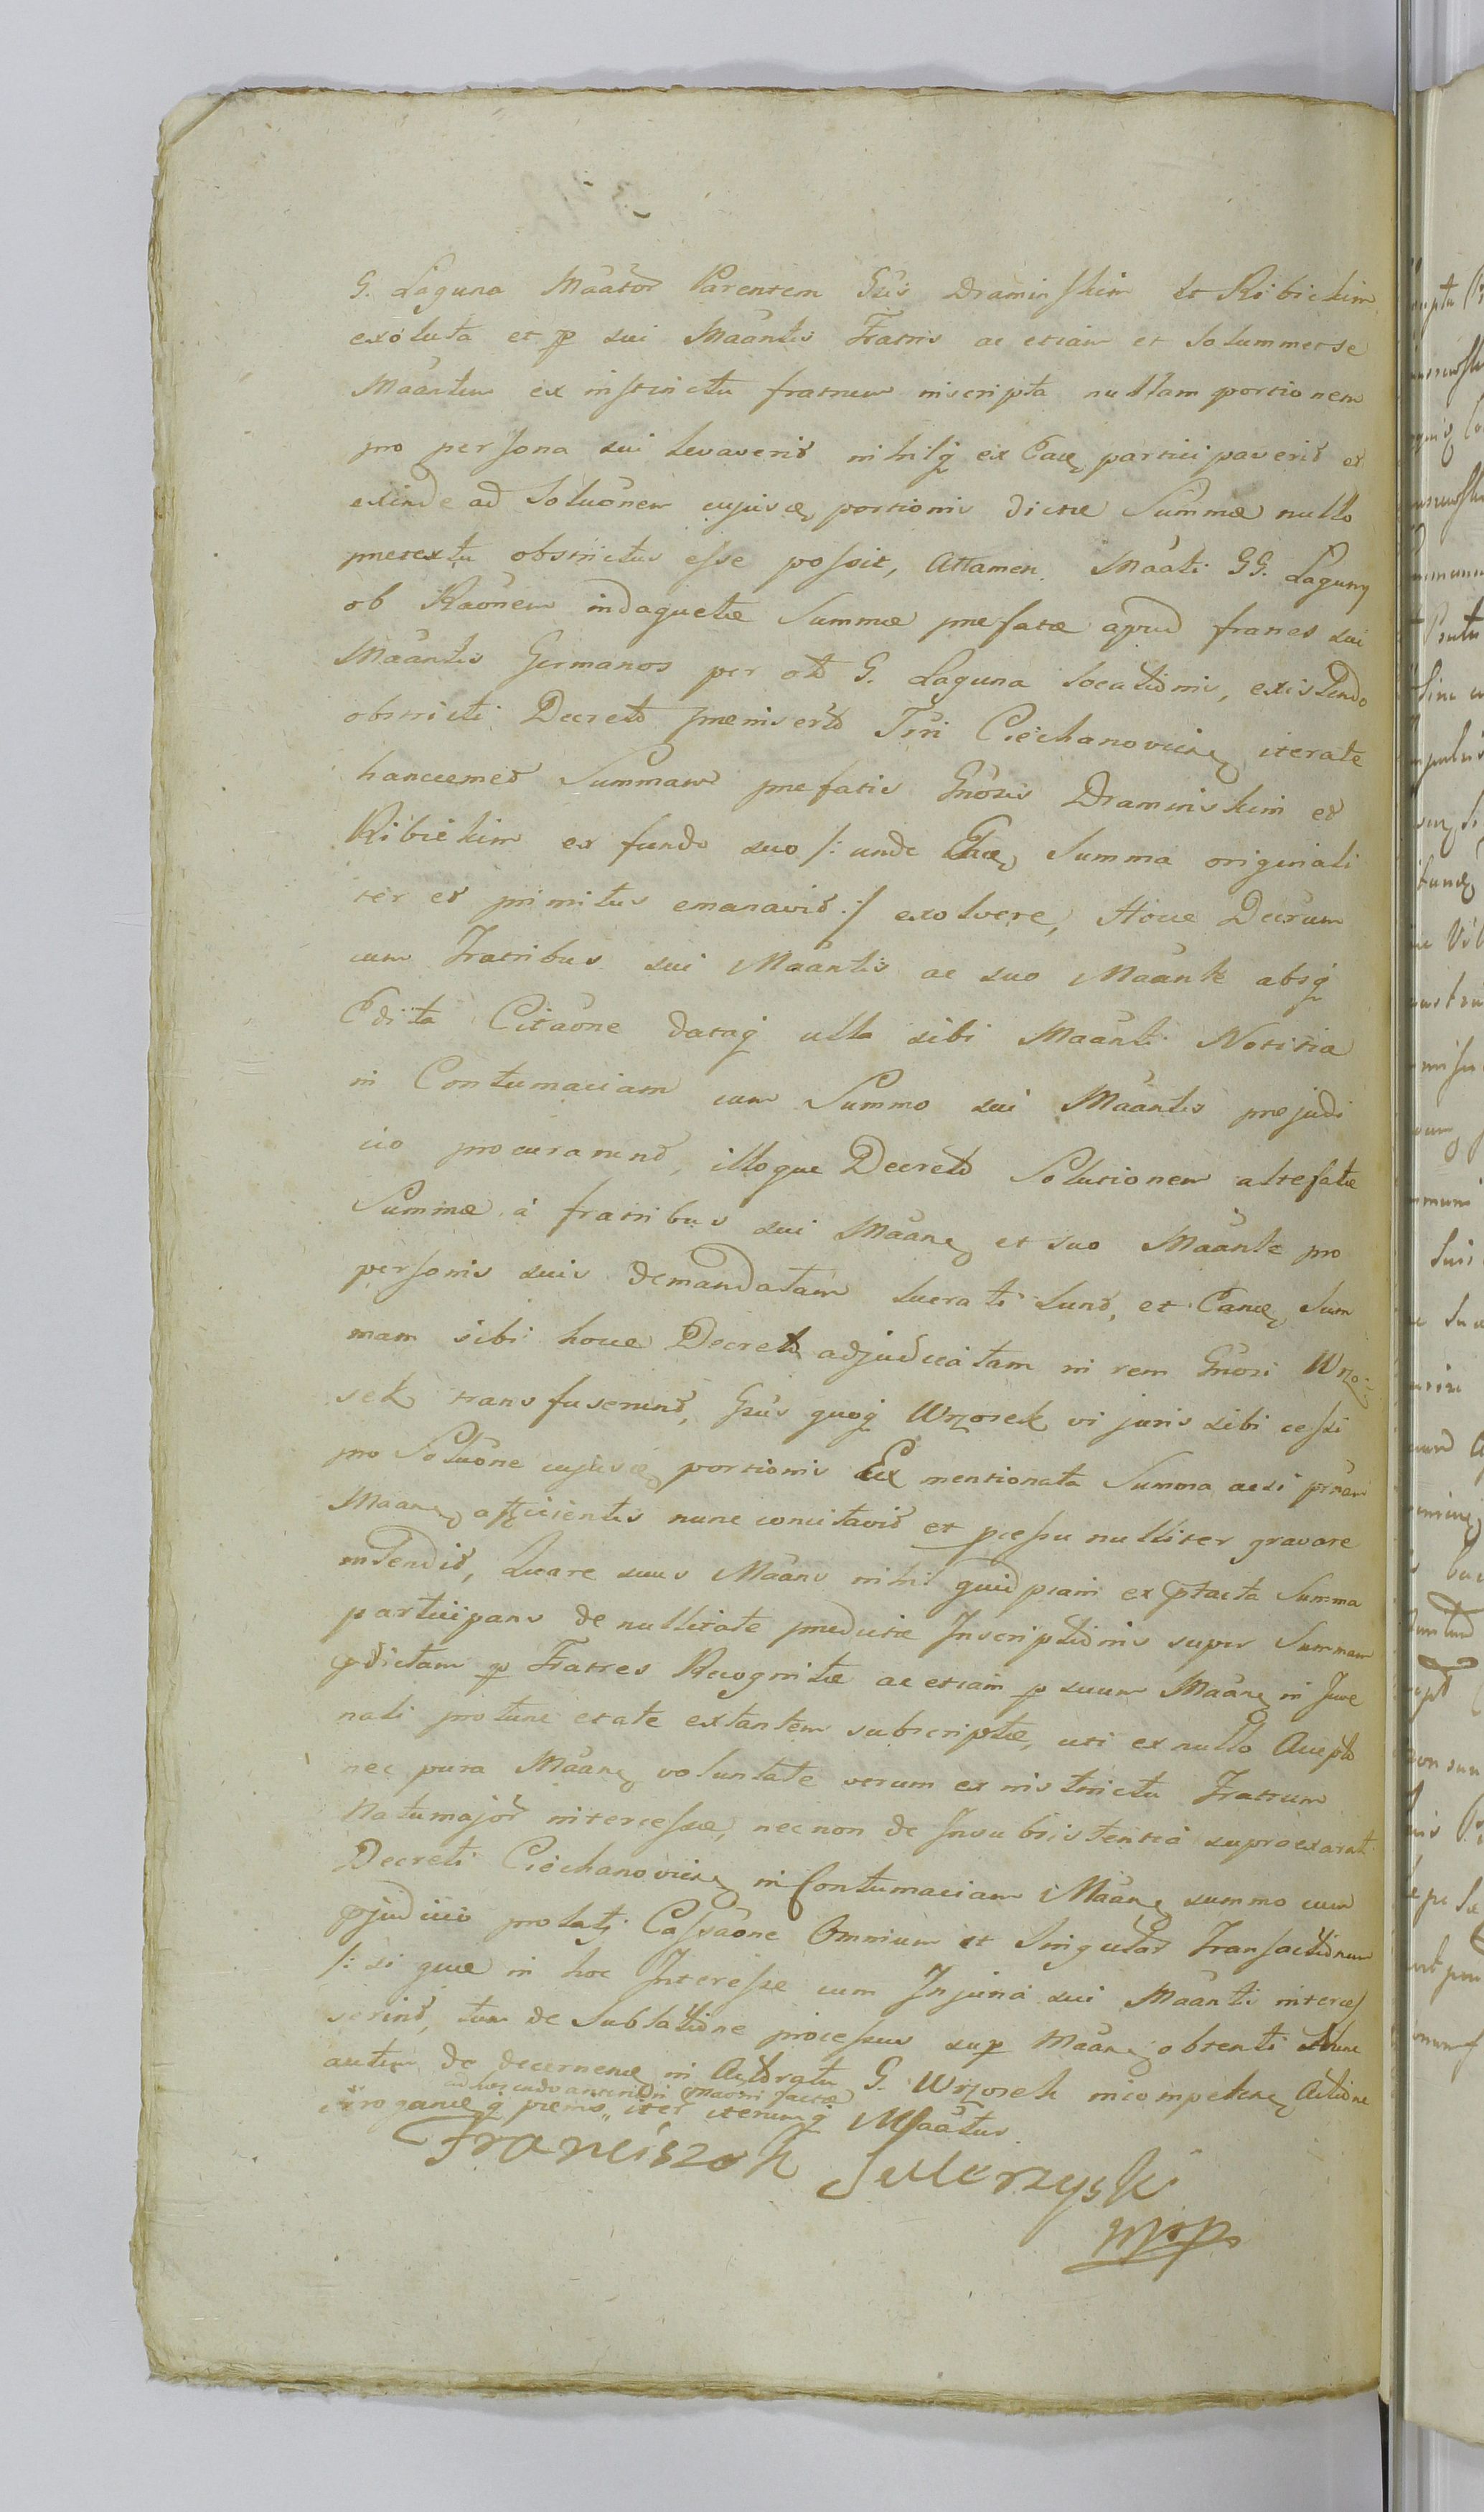 G. Laguna Maator Parentem Gsis Draminskim et Ribickim
exoluta et p sui Maantis Fratris ac etiam et solummet se
Maantem ex instinctu fratrum inscripta nullam portionem
pro persona sui levaverit nihilq ex Eaq participaverit et
exinde ad Soluõnem cujusq portionis dictæ Summæ nullo
prætextu obstrictus esse possit, Attamen Maati GG. Laguny
ob Raõnem indaguetæ Summæ præfatæ apud fratres sui
Maantis Germanos per G. Laguna locationis, existendo
obstricti Decreto præinserto Tri Ciechanovien iterate
hancce Summam præfatis Gnosis Draminskim et
Ribickim ex fundo suo /: unde Eaq Summa originali
ter et primitus emanavit :/ exolvere, Hocce Decrum
cum Fratribus sui Maantis ac suo Maante absq
Edita Citaõne dataq ulla sibi Maanti Notitia
in Contumaciam cum Summo sui Maantis præjudi
cio procurarunt, illoque Decreto Solutionem altefatæ
Summæ à fratribus sui Maan et suo Maante pro
personis suis demandatam lucrati sunt, et Eanq Sum
mam sibi hocce Decreto adjudicatam in rem Gnosi Wrzo
sek transfuserunt, Gsus quoq Wrzosek vi juris sibi cessi
pro Soluõne cujusq portionis Ex mentionata Summa acsi
Maan afficientis nunc concitavit et pcessu nulliter gravare
intendit, Quare suus Maans nihil quidpiam ex ptacta Summa
participans de nullitate prædictæ Inscriptionis super Summam
pdictam p Fratres Recognitæ ac etiam p suum Maan in Juve
nali protunc etate extantem subscriptæ, uti ex nullo Accepto
nec pura Maan voluntate verum ex instinctu Fratrum
Natumajor intercessæ, nec non de Insubsistentia supraexarat
Decreti Ciechanovien in Contumaciam Maan summo cum
pjudicio prolati Cassaõne Omnium et Singular Transactionum
/: si quæ in hoc Interesse cum Injuria sui Maantis interces
serint, tum de Sublatione processus sup Maan obtenti Nunc
autem de decernen in Actoratu G. Wrzosek incompeten Actione
ad
irroganq præmis iter iterumq Maatus
Franciszek Sulerzyski
mpp